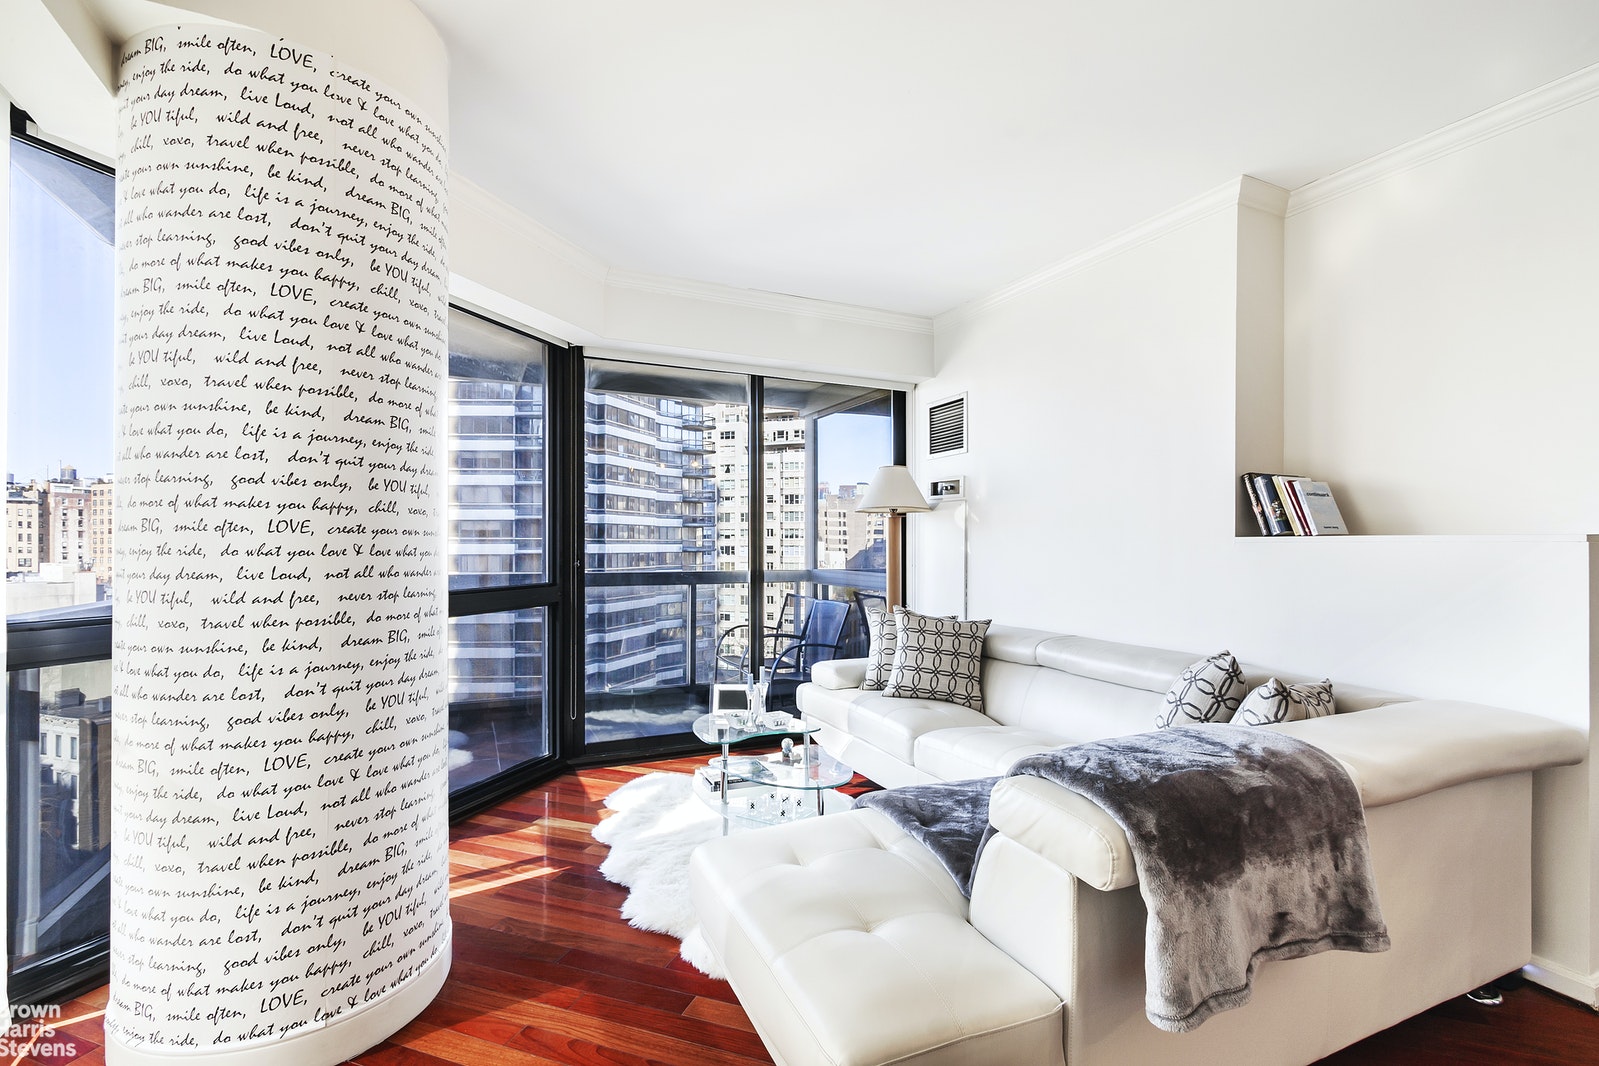 dream BIG, smile often, LOVE, create your own sunshine
enjoy the ride, do what you love & love what you do
your day dream, live Loud, not all who wander
be YOU tiful, wild and free, never stop learning
chill, xoxo, travel when possible, do more of what
your own sunshine, be kind, dream BIG, smile
love what you do, life is a journey, enjoy the ride,
all who wander are lost, don't quit your day dream
stop learning, good vibes only, be YOU tiful,
do more of what makes you happy, chill, xoxo,
dream BIG, smile often, LOVE, create your own sunshine
enjoy the ride, do what you love & love what you do
your day dream, live Loud, not all who wander
be YOU tiful, wild and free, never stop learning
chill, xoxo, travel when possible, do more of what
your own sunshine, be kind, dream BIG, smile
love what you do, life is a journey, enjoy the ride,
all who wander are lost, don't quit your day dream
stop learning, good vibes only, be YOU tiful,
do more of what makes you happy, chill, xoxo,
dream BIG, smile often, LOVE, create your own sunshine
enjoy the ride, do what you love & love what you do
your day dream, live Loud, not all who wander
be YOU tiful, wild and free, never stop learning
chill, xoxo, travel when possible, do more of what
your own sunshine, be kind, dream BIG, smile
& love what you do, life is a journey, enjoy the ride,
all who wander are lost, don't quit your day dream
stop learning, good vibes only, be YOU tiful,
do more of what makes you happy, chill, xoxo,
dream BIG, smile often, LOVE, create your own sunshine
enjoy the ride, do what you love & love what you do
your day dream, live Loud, not all who wander
be YOU tiful, wild and free, never stop learning
chill, xoxo, travel when possible, do more of what
your own sunshine, be kind, dream BIG, smile
love what you do, life is a journey, enjoy the ride,
all who wander are lost, don't quit your day dream
stop learning, good vibes only, be YOU tiful,
do more of what makes you happy, chill, xoxo,
dream BIG, smile often, LOVE, create your own sunshine
enjoy the ride, do what you love & love what you do
Brown
Harris
Stevens